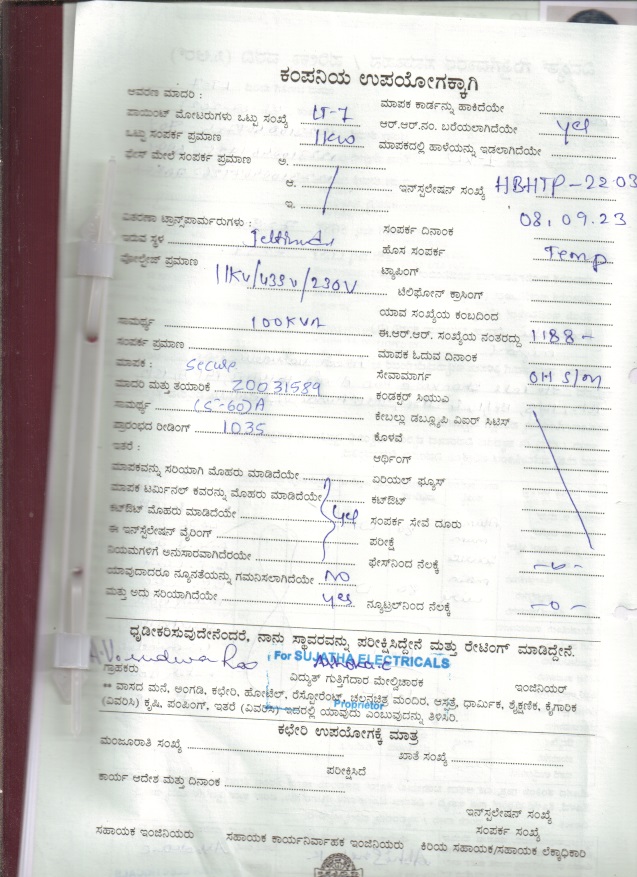 ಕಂಪನಿಯ ಉಪಯೋಗಕ್ಕಾಗಿ
ಆವರಣ ಮಾದರಿ :
ಮಾಪಕ ಕಾರ್ಡನ್ನು ಹಾಕಿದೆಯೇ
ಪಾಯಿಂಟ್ ಮೋಟರುಗಳು ಒಟ್ಟು ಸಂಖ್ಯೆ LT-7
ಆರ್.ಆರ್.ನಂ. ಬರೆಯಲಾಗಿದೆಯೇ yes
ಒಟ್ಟು ಸಂಪರ್ಕ ಪ್ರಮಾಣ 11KW
ಮಾಪಕದಲ್ಲಿ ಹಾಳೆಯನ್ನು ಇಡಲಾಗಿದೆಯೇ
ಫೇಸ್ ಮೇಲೆ ಸಂಪರ್ಕ ಪ್ರಮಾಣ ಅ.
ಆ.
ಇನ್ಸ್‌ಪಲೇಷನ್ ಸಂಖ್ಯೆ HBHTP-22.03
ಇ.
08.09.23
ವಿತರಣಾ ಟ್ರಾನ್ಸ್‌ಪಾರ್ಮರುಗಳು :
ಸಂಪರ್ಕ ದಿನಾಂಕ
ಇರುವ ಸ್ಥಳ
ಹೊಸ ಸಂಪರ್ಕ Temp
ವೋಲ್ಟೇಜ್ ಪ್ರಮಾಣ 11KV/433V/230V
ಟ್ಯಾಪಿಂಗ್
ಟೆಲಿಫೋನ್ ಕ್ರಾಸಿಂಗ್
ಯಾವ ಸಂಖ್ಯೆಯ ಕಂಬದಿಂದ
ಸಾಮರ್ಥ್ಯ 100KVA
ಈ.ಆರ್.ಆರ್. ಸಂಖ್ಯೆಯ ನಂತರದ್ದು 1188-
ಸಂಪರ್ಕ ಪ್ರಮಾಣ
ಮಾಪಕ ಓದುವ ದಿನಾಂಕ
ಮಾಪಕ : Secure
ಸೇವಾಮಾರ್ಗ OH
ಮಾದರಿ ಮತ್ತು ತಯಾರಿಕೆ 20031589
ಕಂಡಕ್ಟರ್ ಸಿಯುಎ
ಸಾಮರ್ಥ್ಯ (5-60)A
ಕೇಬಲ್ಲು ಡಬ್ಲ್ಯೂಪಿ ವಿಐರ್ ಸಿಟಿಸ್
ಪ್ರಾರಂಭದ ರೀಡಿಂಗ್ 1035
ಕೊಳವೆ
ಇತರೆ :
ಆರ್ಥಿಂಗ್
ಮಾಪಕವನ್ನು ಸರಿಯಾಗಿ ಮೊಹರು ಮಾಡಿದೆಯೇ
ಏರಿಯಲ್ ಫ್ಯೂಸ್
ಮಾಪಕ ಟರ್ಮಿನಲ್ ಕವರನ್ನು ಮೊಹರು ಮಾಡಿದೆಯೇ
ಕಟ್‌ಔಟ್
ಕಟ್‌ಔಟ್ ಮೊಹರು ಮಾಡಿದೆಯೇ yes
ಸಂಪರ್ಕ ಸೇವೆ ದೂರು
ಈ ಇನ್‌ಸ್ಟಲೇಷನ್ ವೈರಿಂಗ್
ಪರೀಕ್ಷೆ
ನಿಯಮಗಳಿಗೆ ಅನುಸಾರವಾಗಿದೆರಯೇ
ಫೇಸ್‌ನಿಂದ ನೆಲಕ್ಕೆ -0-
ಯಾವುದಾದರೂ ನ್ಯೂನತೆಯನ್ನು ಗಮನಿಸಲಾಗಿದೆಯೇ NO
ಮತ್ತು ಅದು ಸರಿಯಾಗಿದೆಯೇ yes
ನ್ಯೂಟ್ರಲ್‌ನಿಂದ ನೆಲಕ್ಕೆ -0-
ಧೃಡೀಕರಿಸುವುದೇನೆಂದರೆ, ನಾನು ಸ್ಥಾವರವನ್ನು ಪರೀಕ್ಷಿಸಿದ್ದೇನೆ ಮತ್ತು ರೇಟಿಂಗ್ ಮಾಡಿದ್ದೇನೆ.
For SUJATHA ELECTRICALS
ಗ್ರಾಹಕರು ವಿದ್ಯುತ್ ಗುತ್ತಿಗೆದಾರ ಮೇಲ್ವಿಚಾರಕ ಇಂಜಿನಿಯರ್
** ವಾಸದ ಮನೆ, ಅಂಗಡಿ, ಕಛೇರಿ, ಹೋಟೆಲ್, ರೆಸ್ಟೋರೆಂಟ್, ಚಲನಚಿತ್ರ ಮಂದಿರ, ಆಸ್ಪತ್ರೆ, ಧಾರ್ಮಿಕ, ಶೈಕ್ಷಣಿಕ, ಕೈಗಾರಿಕ
Proprietor
(ವಿವರಿಸಿ) ಕೃಷಿ, ಪಂಪಿಂಗ್, ಇತರೆ (ವಿವರಿಸಿ) ಇದರಲ್ಲಿ ಯಾವುದು ಎಂಬುವುದನ್ನು ತಿಳಿಸಿರಿ.
ಕಛೇರಿ ಉಪಯೋಗಕ್ಕೆ ಮಾತ್ರ
ಮಂಜೂರಾತಿ ಸಂಖ್ಯೆ
ಖಾತೆ ಸಂಖ್ಯೆ
ಪರೀಕ್ಷಿಸಿದೆ
ಕಾರ್ಯ ಆದೇಶ ಮತ್ತು ದಿನಾಂಕ
ಇನ್‌ಸ್ಪಲೇಷನ್ ಸಂಖ್ಯೆ
ಸಂಪರ್ಕ ಸಂಖ್ಯೆ
ಸಹಾಯಕ ಇಂಜಿನಿಯರು ಸಹಾಯಕ ಕಾರ್ಯನಿರ್ವಾಹಕ ಇಂಜಿನಿಯರು ಕಿರಿಯ ಸಹಾಯಕ/ಸಹಾಯಕ ಲೆಕ್ಕಾಧಿಕಾರಿ